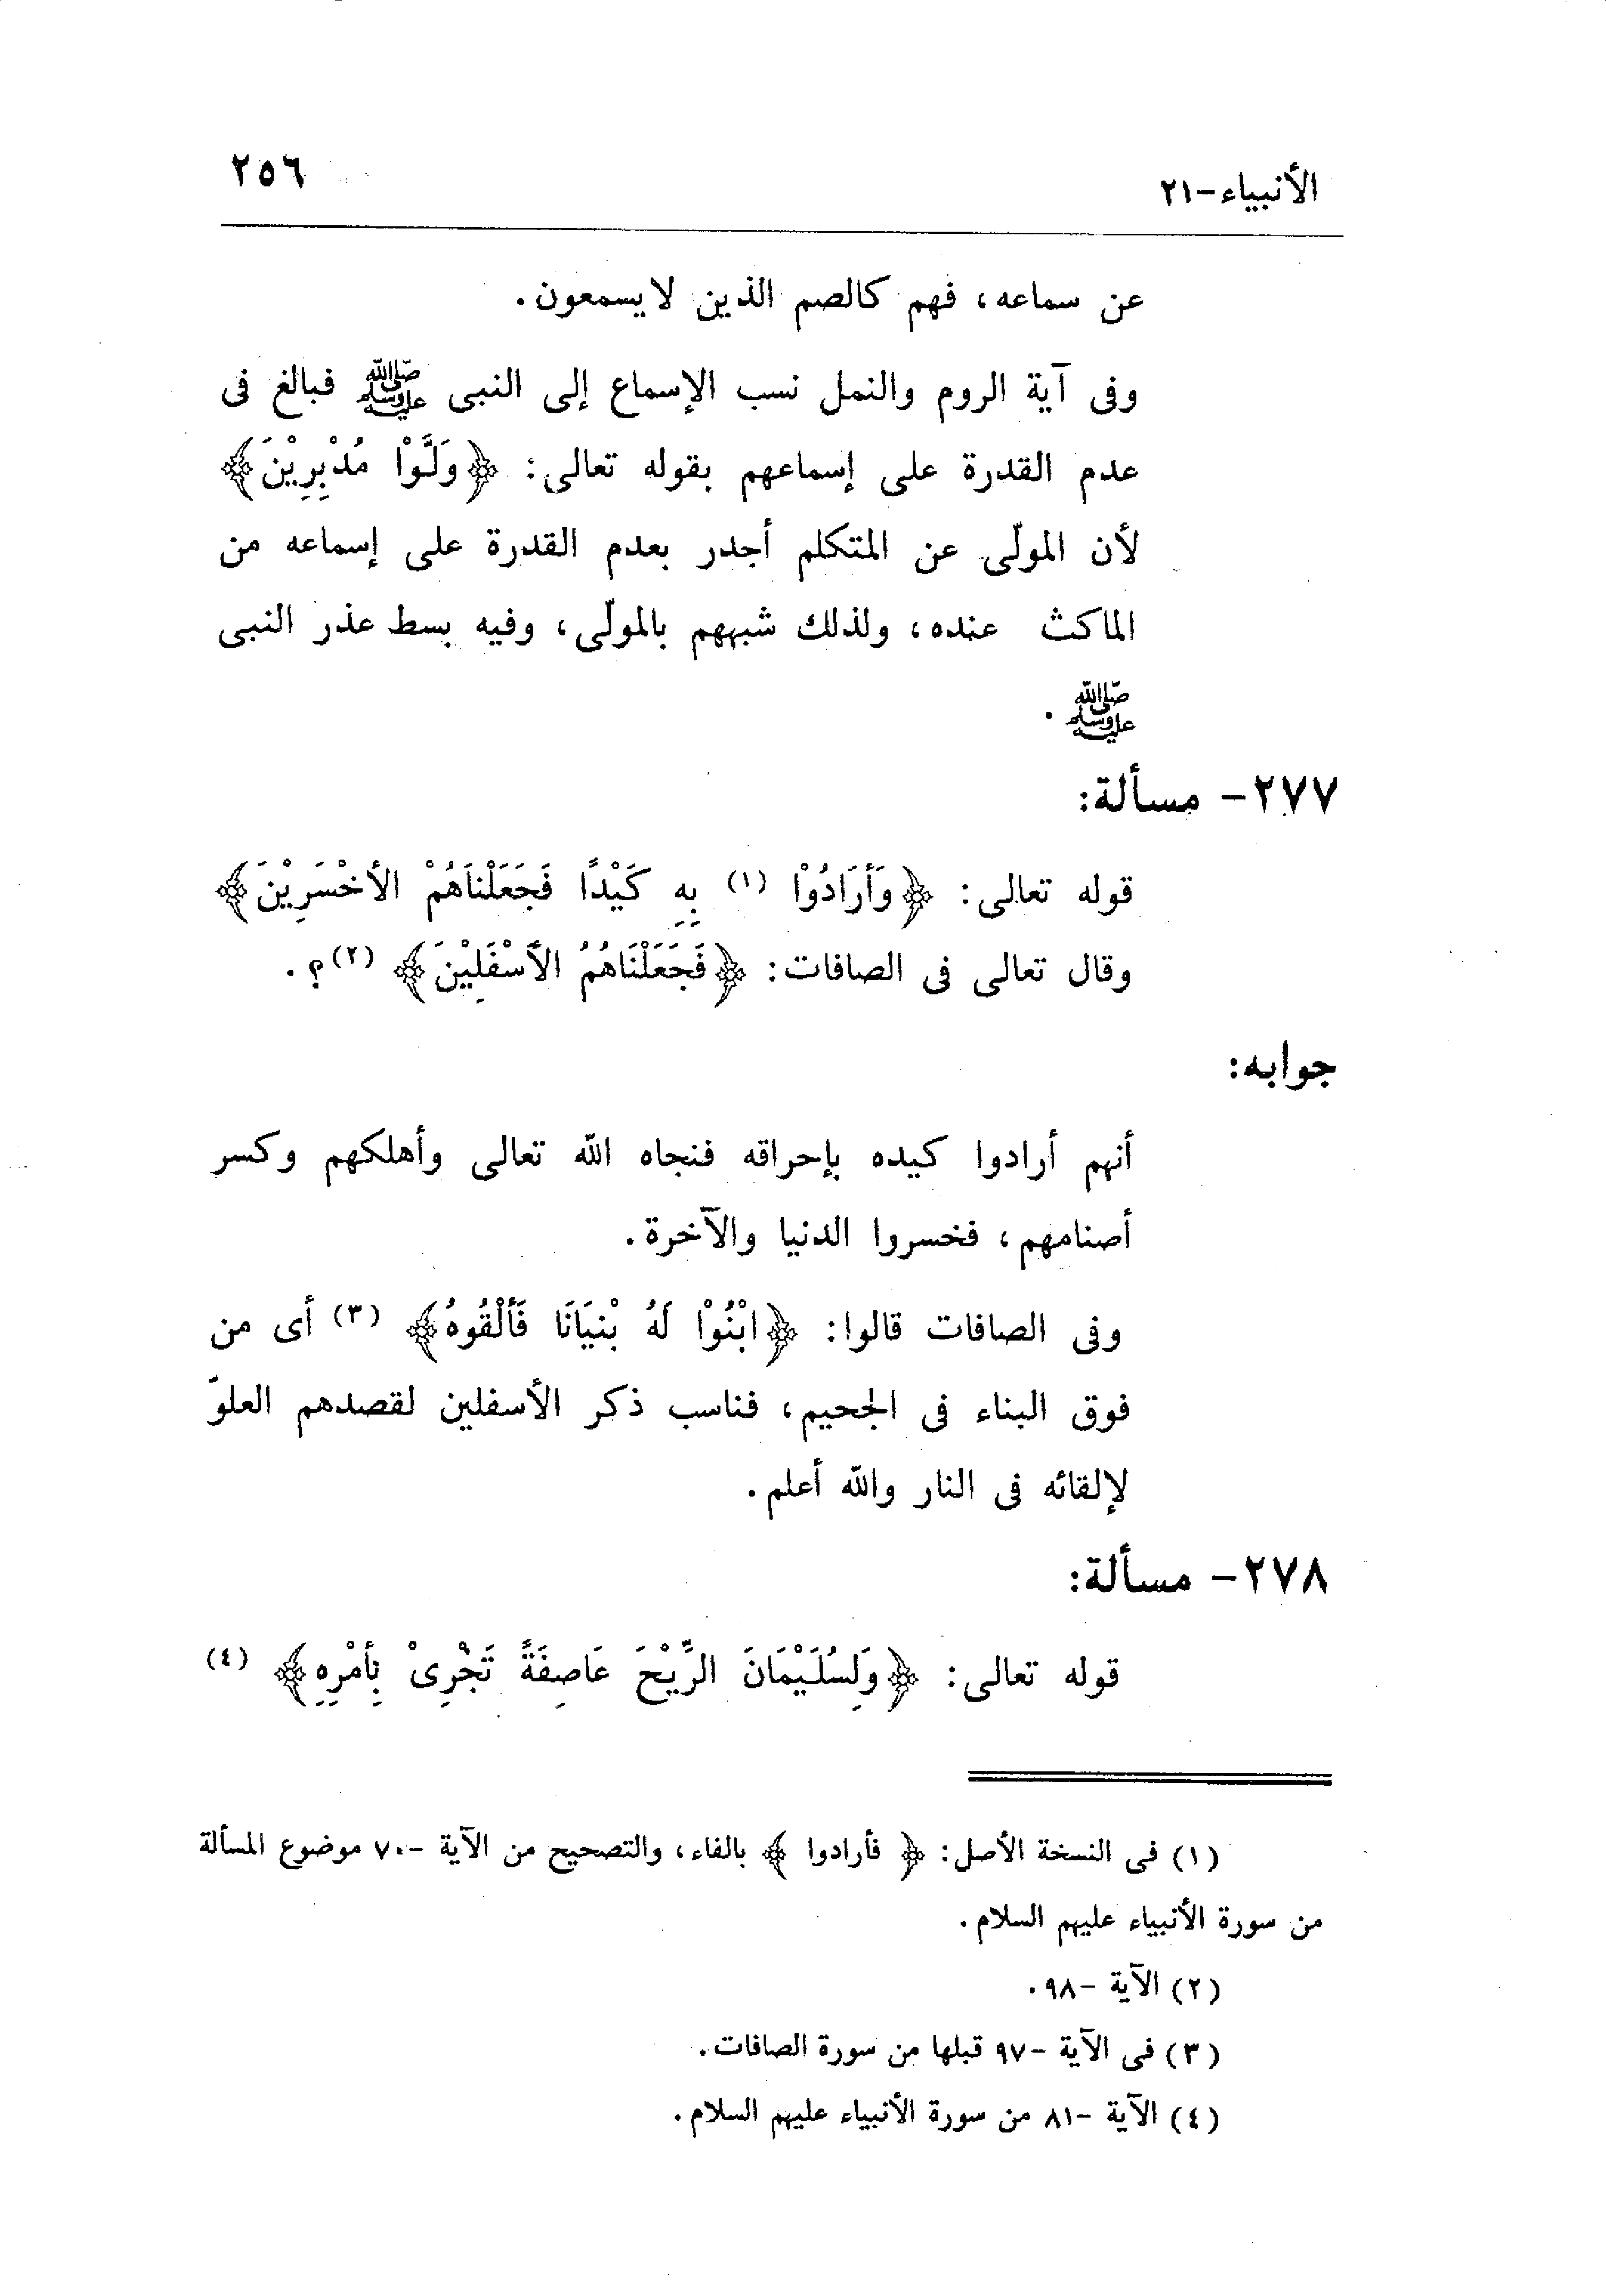 الأنبياء-٢١
٢٥٦
عن سماعه، فهم كالصم الذين لا يسمعون.
وفى آية الروم والنمل نسب الإسماع إلى النبى ﷺ فبالغ فى
عدم القدرة على إسماعهم بقوله تعالى: ﴿وَلَّوْا مُدْبِرِيْنَ﴾
لأن المولّى عن المتكلم أجدر بعدم القدرة على إسماعه من
الماكث عنده، ولذلك شبههم بالمولّى، وفيه بسط عذر النبى
ﷺ.
٢٧٧- مسألة:
قوله تعالى: ﴿وَأَرَادُوْا (١) بِهِ كَيْدًا فَجَعَلْنَاهُمْ الأَخْسَرِيْنَ﴾
وقال تعالى فى الصافات: ﴿فَجَعَلْنَاهُمُ الأَسْفَلِيْنَ﴾ (٢)؟.
جوابه:
أنهم أرادوا كيده بإحراقه فنجاه الله تعالى وأهلكهم وكسر
أصنامهم، فخسروا الدنيا والآخرة.
وفى الصافات قالوا: ﴿ابْنُوْا لَهُ بْنيَانَا فَأَلْقُوهُ﴾ (٣) أى من
فوق البناء فى الجحيم، فناسب ذكر الأسفلين لقصدهم العلوّ
لإلقائه فى النار والله أعلم.
٢٧٨- مسألة:
قوله تعالى: ﴿وَلِسُلَيْمَانَ الرِّيْحَ عَاصِفَةً تَجْرِىْ بِأَمْرِهِ﴾ (٤)
(١) فى النسخة الأصل: ﴿ فأرادوا ﴾ بالفاء، والتصحيح من الآية -٧٠ موضوع المسألة
من سورة الأنبياء عليهم السلام.
(٢) الآية -٩٨.
(٣) فى الآية -٩٧ قبلها من سورة الصافات.
(٤) الآية -٨١ من سورة الأنبياء عليهم السلام.